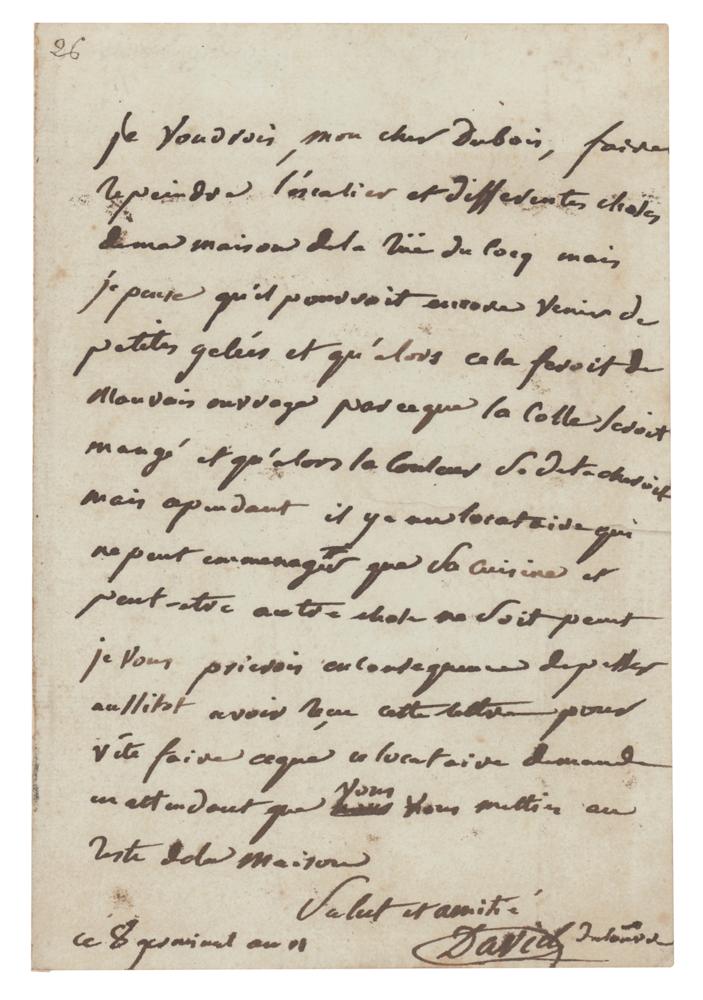 26
je voudrois, mon cher Dubois, faire
repeindre l'éscalier et differentes choses
de ma maison de la rüe du Cocq mais
je pense qu'il pourroit encore venir de
petites gelées et qu'alors cela feroit de
mauvais ouvrage parceque la Colle seroit
mangé et qu'alors la Couleur se detacheroit
mais cependant il y a un locataire qui
ne peut emmenager que sa cuisine et
peut-etre autre chose ne soit peint
je vous prierois en consequence de passer
aussitot avoir reçu cette lettre pour
vite faire ceque ce locataire demande
en attendant que vous vous mettiez au
reste de la maison
Salut et amitié
ce 8 germinal an 11 David